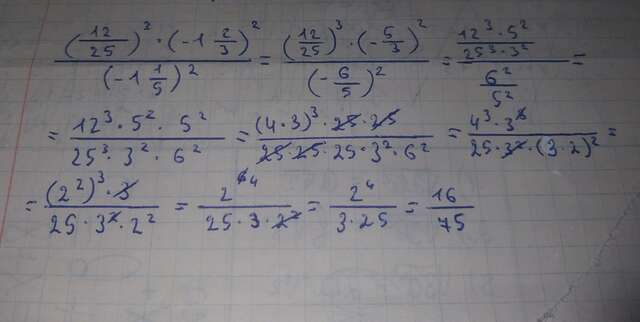 ((12/25)³ · (-1 2/3)²)/((-1 1/5)²) = ((12/25)³ · (-5/3)²)/((-6/5)²) = ((12³ · 5²)/(25³ · 3²))/(6²/5²) =
= (12³ · 5² · 5²)/(25³ · 3² · 6²) = ((4 · 3)³ · 25 · 25)/(25 · 25 · 25 · 3² · 6²) = (4³ · 3³)/(25 · 3² · (3 · 2)²) =
= ((2²)³ · 3)/(25 · 3² · 2²) = 2⁶ ⁴/(25 · 3 · 2²) = 2⁴/(3 · 25) = 16/75